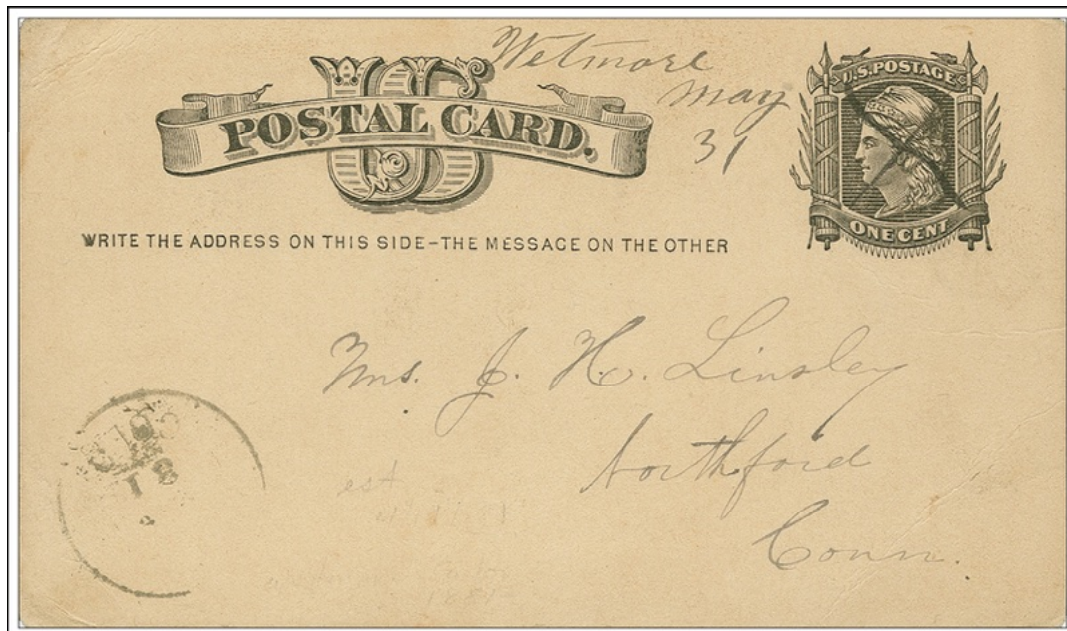 Wetmore
May
31
US
POSTAL CARD.
U.S. POSTAGE
ONE CENT
WRITE THE ADDRESS ON THIS SIDE–THE MESSAGE ON THE OTHER
Mrs. J. H. Linsley
Northford
Conn.
31
est